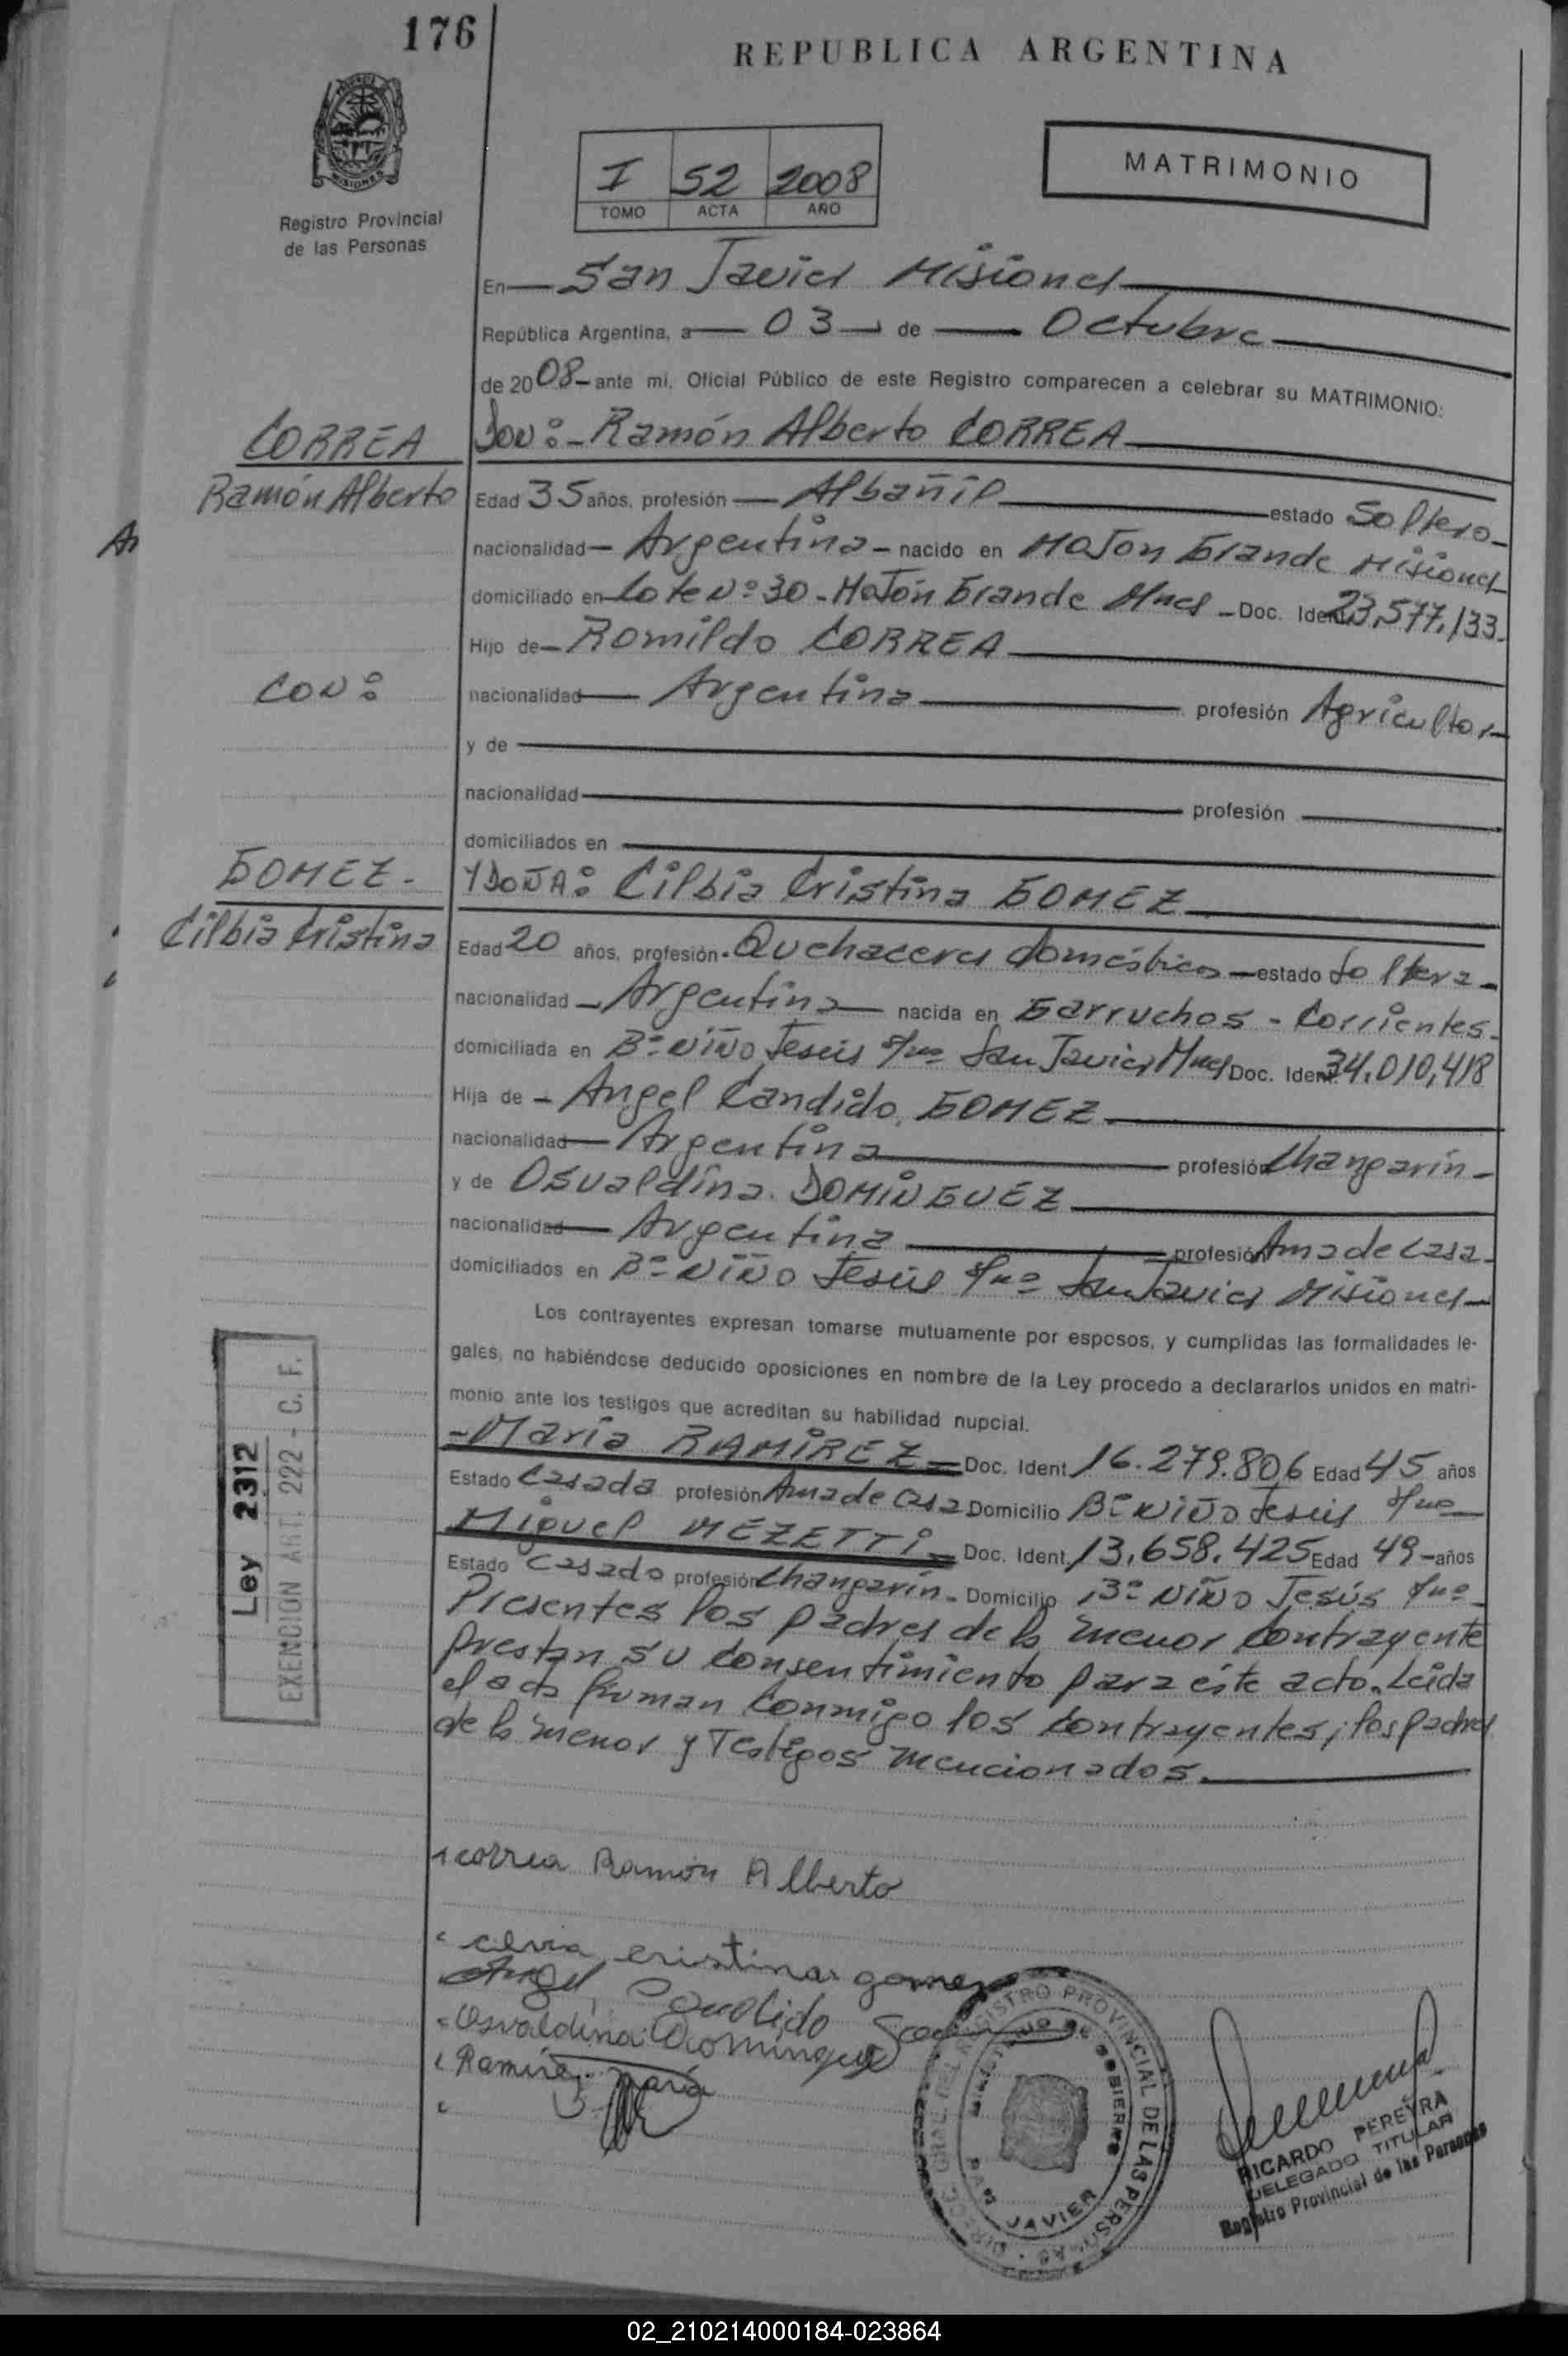 176
REPUBLICA ARGENTINA
MISIONES
Registro Provincial
de las Personas
I 52 2008
TOMO ACTA AÑO
MATRIMONIO
En San Javier Misiones
República Argentina, a 03 de Octubre
de 2008 ante mi, Oficial Público de este Registro comparecen a celebrar su MATRIMONIO:
CORREA
Ramón Alberto
DON: Ramón Alberto CORREA
Edad 35 años, profesión Albañil estado Soltero
nacionalidad Argentina nacido en Mojon Grande Misiones
domiciliado en Lote Nº 30 - Mojón Grande Mnes - Doc. Ident. 23,577,133
Hijo de Romildo CORREA
CON:
nacionalidad Argentina profesión Agricultor
y de
nacionalidad profesión
domiciliados en
GOMEZ.
Cilbia Cristina
Y DOÑA: Cilbia Cristina GOMEZ
Edad 20 años, profesión Quehaceres domésticos estado Soltera
nacionalidad Argentina nacida en Garruchos - Corrientes
domiciliada en Bº NIÑO Jesús s/nº San Javier Mnes Doc. Ident. 34,010,418
Hija de Angel Candido GOMEZ
nacionalidad Argentina profesión Changarín
y de Osvaldina DOMINGUEZ
nacionalidad Argentina profesión Ama de casa
domiciliados en Bº NIÑO Jesús s/nº San Javier Misiones
Los contrayentes expresan tomarse mutuamente por esposos, y cumplidas las formalidades le-
gales, no habiéndose deducido oposiciones en nombre de la Ley procedo a declararlos unidos en matri-
monio ante los testigos que acreditan su habilidad nupcial.
María RAMIREZ Doc. Ident. 16.279.806 Edad 45 años
Estado Casada profesión Ama de casa Domicilio Bº NIÑO Jesús s/nº
Miguel MEZETTI Doc. Ident. 13,658.425 Edad 49 años
Estado Casado profesión Changarín Domicilio Bº NIÑO Jesús s/nº
Presentes los padres de la menor contrayente
prestan su consentimiento para éste acto. Leida
el acta firman conmigo los contrayentes, los padres
de la menor y Testigos mencionados.
Ley 2312
EXENCION ART. 222 - C. F.
correa Ramón Alberto
cristina gomez
Angel Candido
Osvaldina Dominguez
Ramírez María
REGISTRO PROVINCIAL DE LAS PERSONAS
MINISTERIO DE GOBIERNO
SAN JAVIER
RICARDO PEREYRA
DELEGADO TITULAR
Registro Provincial de las Personas
02_210214000184-023864